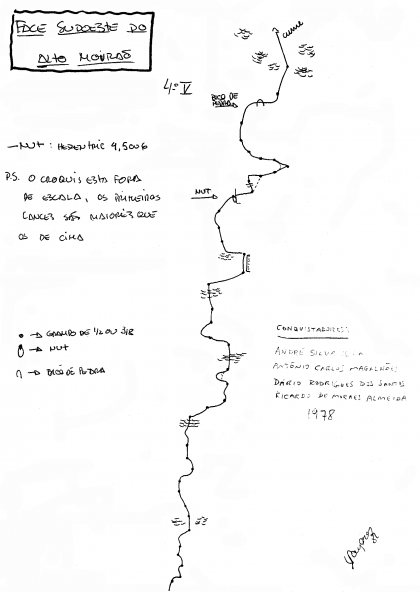 FACE SUDOESTE DO
ALTO MOURÃO
CUME
4º V
BICO DE
PEDRA
NUT: HEXENTRIC 4,5 OU 6
P.S. O CROQUIS ESTA FORA
DE ESCALA, OS PRIMEIROS
LANCES SÃO MAIORES QUE
OS DE CIMA
NUT
GRAMPO DE 1/2 OU 3/8
NUT
BICO DE PEDRA
CONQUISTADORES:
ANDRÉ SILVA
ANTÔNIO CARLOS MAGALHÃES
DÁRIO RODRIGUES DOS SANTOS
RICARDO DE MORAES ALMEIDA
1978